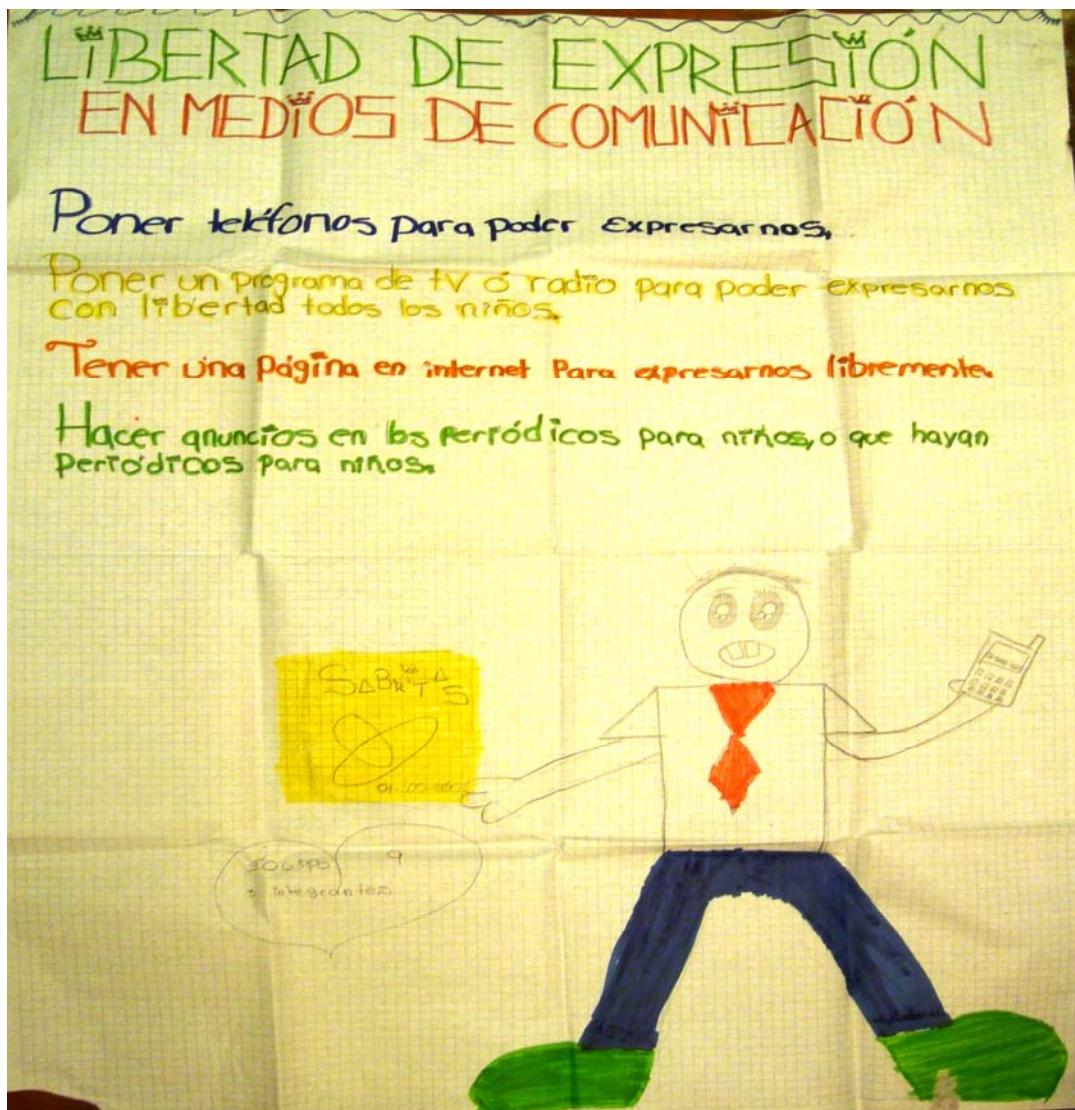 LiBERTAD DE EXPRESiÓN
EN MEDiOS DE COMUNiCACiÓN
Poner teléfonos para poder expresarnos,
Poner un programa de tv ó radio para poder expresarnos
con libertad todos los niños.
Tener una página en internet Para expresarnos libremente.
Hacer anuncios en los periódicos para niños, o que hayan
periódicos para niños.
SABRiTAS
01-800
9
integrantes